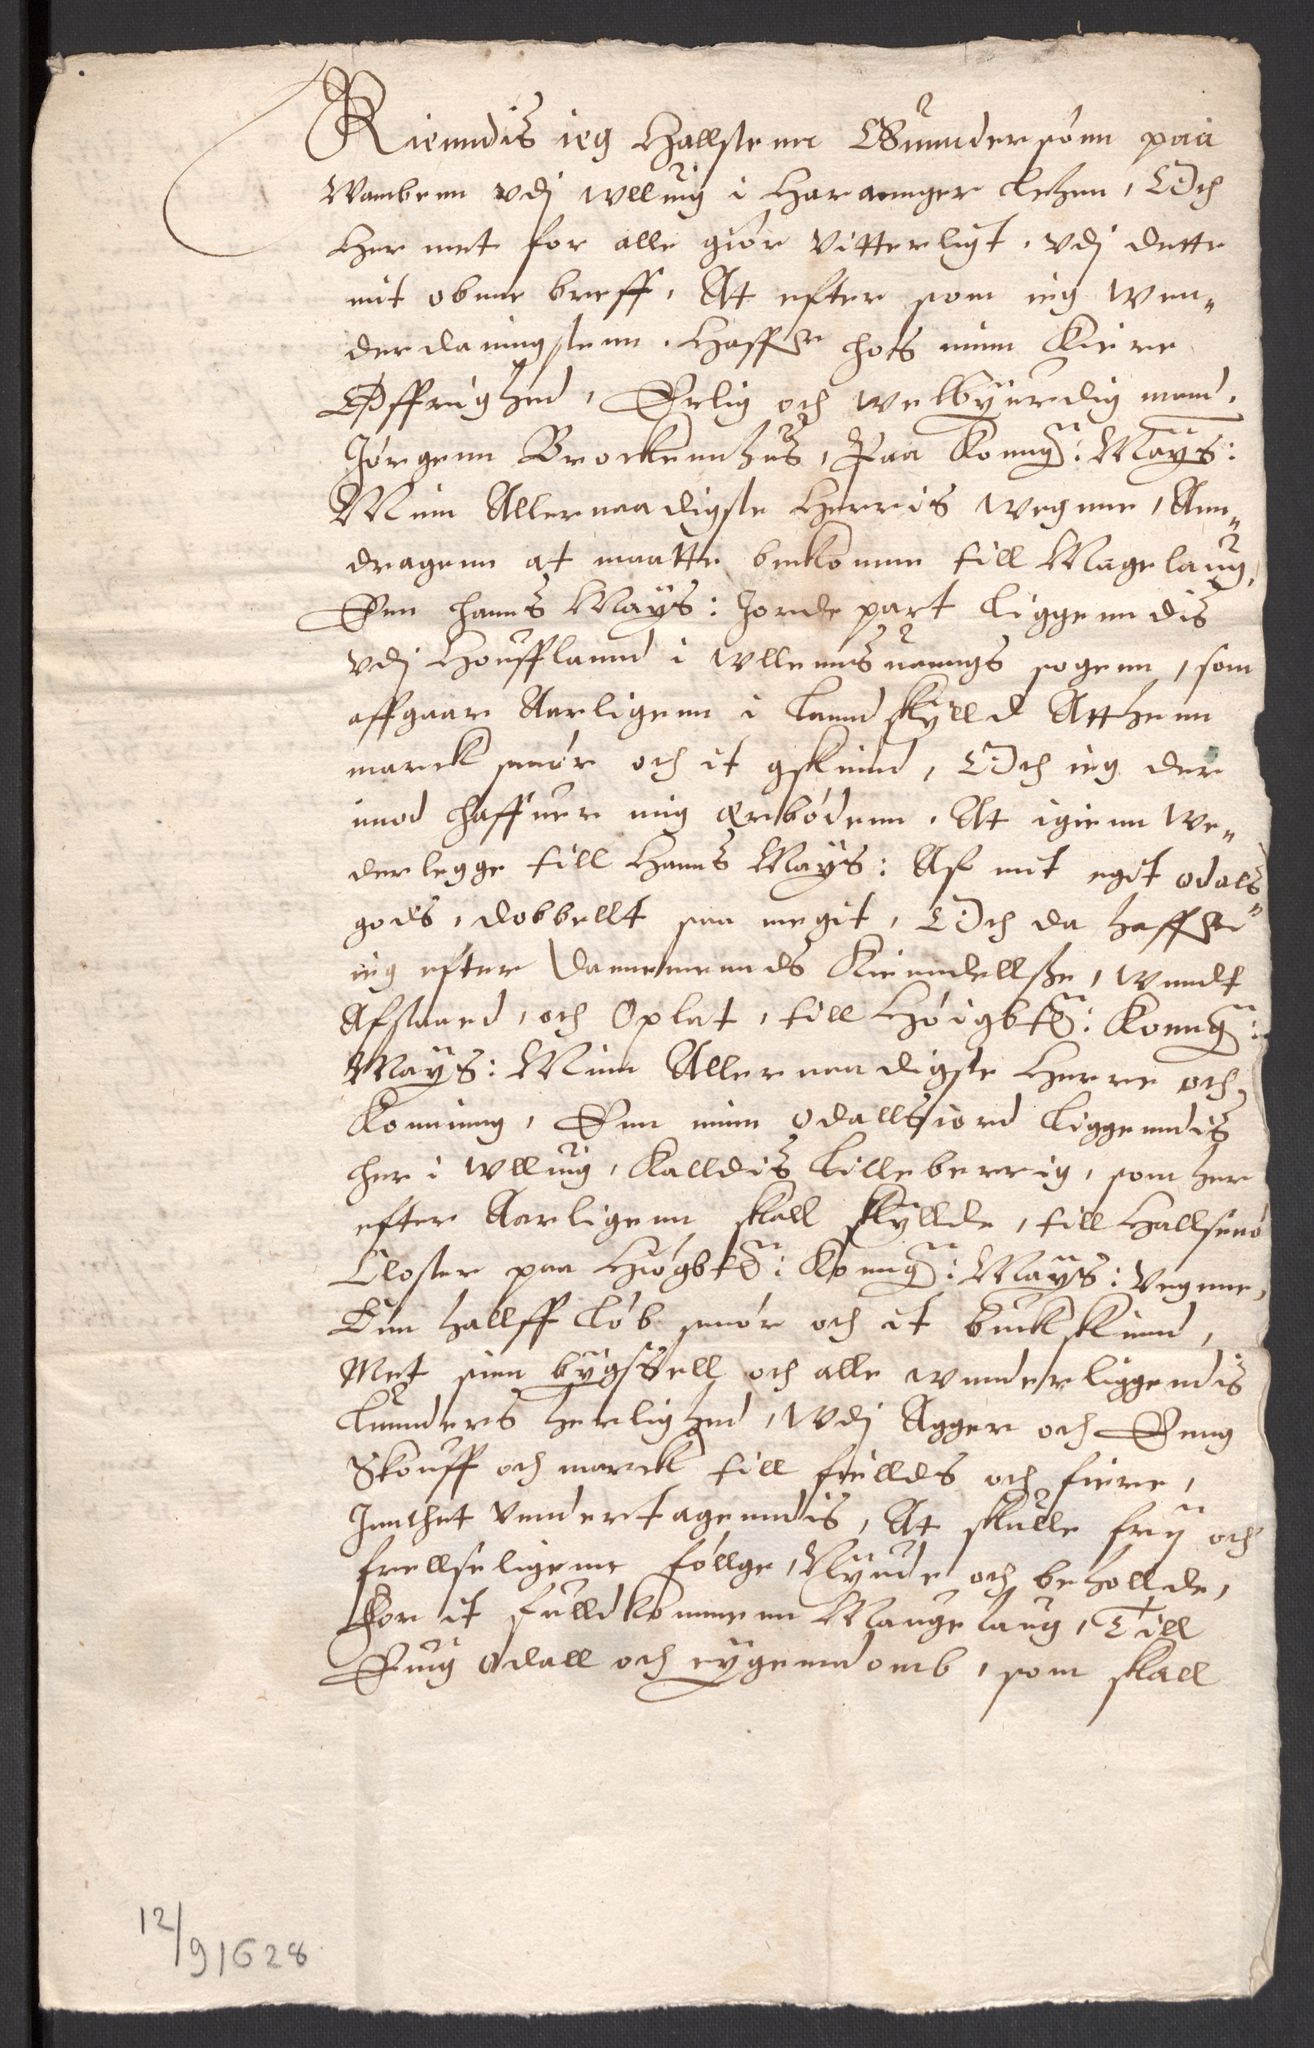 Kienndis ieg Hallstenn Gunndersønn paa
Wambenn vdj Wlluig i Haraunger Lehnn, Och
Her met for alle giør vitterligt, vdj dette
mit obne breff, At efter som ieg Wen„
derdaningstenn, Haffr hos minn Kiere
Øffrighed, Erlig och welbyrdig mand,
Jørgenn Brockennhus, Paa Konng: Mays:
Minn Allernaadigste Herris wegnne, Ann„
dragenn at maatte bekomme till Magelaug,
Enn hanns Mays: Jorde part liggenndis
vdj Houfflannd i Wllennsuanngs sogenn, som
affgaar Aarligenn i Lanndskylld Atthenn
marck smør och it gskinnd, Och ieg der
imod haffuer mig erbødenn, At igienn We„
derlegge till Hanns Mays: Af mit egit odals„
gods, dobbellt saa megit, Och da haffr
ieg efter Dannemennds Kienndellsse, wundt
Afstaaed, och Oplat, till Høigbte: Konng:
Mays: Minn Allernaadigste Herre och
Konning, Enn minn Odallsiord liggenndis
her i Wlluig, Kalldis Lilleberrig, som her
efter Aarligenn skall skyllde, till Hallsnø
Closter paa Høigbte: Konng: Mays: Vegnne,
Enn hallff Løb smør och it buckskinnd,
Met sinn bygssell och alle wnnderliggendis
Lunnders herlighed, Wdj Agger och Enng
Skouff och marck till fiellds och fiere,
Inthet vnndertagenndis, At skulle frij och
frellseligenn føllge, Nyude och behollde,
For it fulldkommenn Maugelaug, Till
Euig Odall och eygenndomb, som skall
12/9 1628